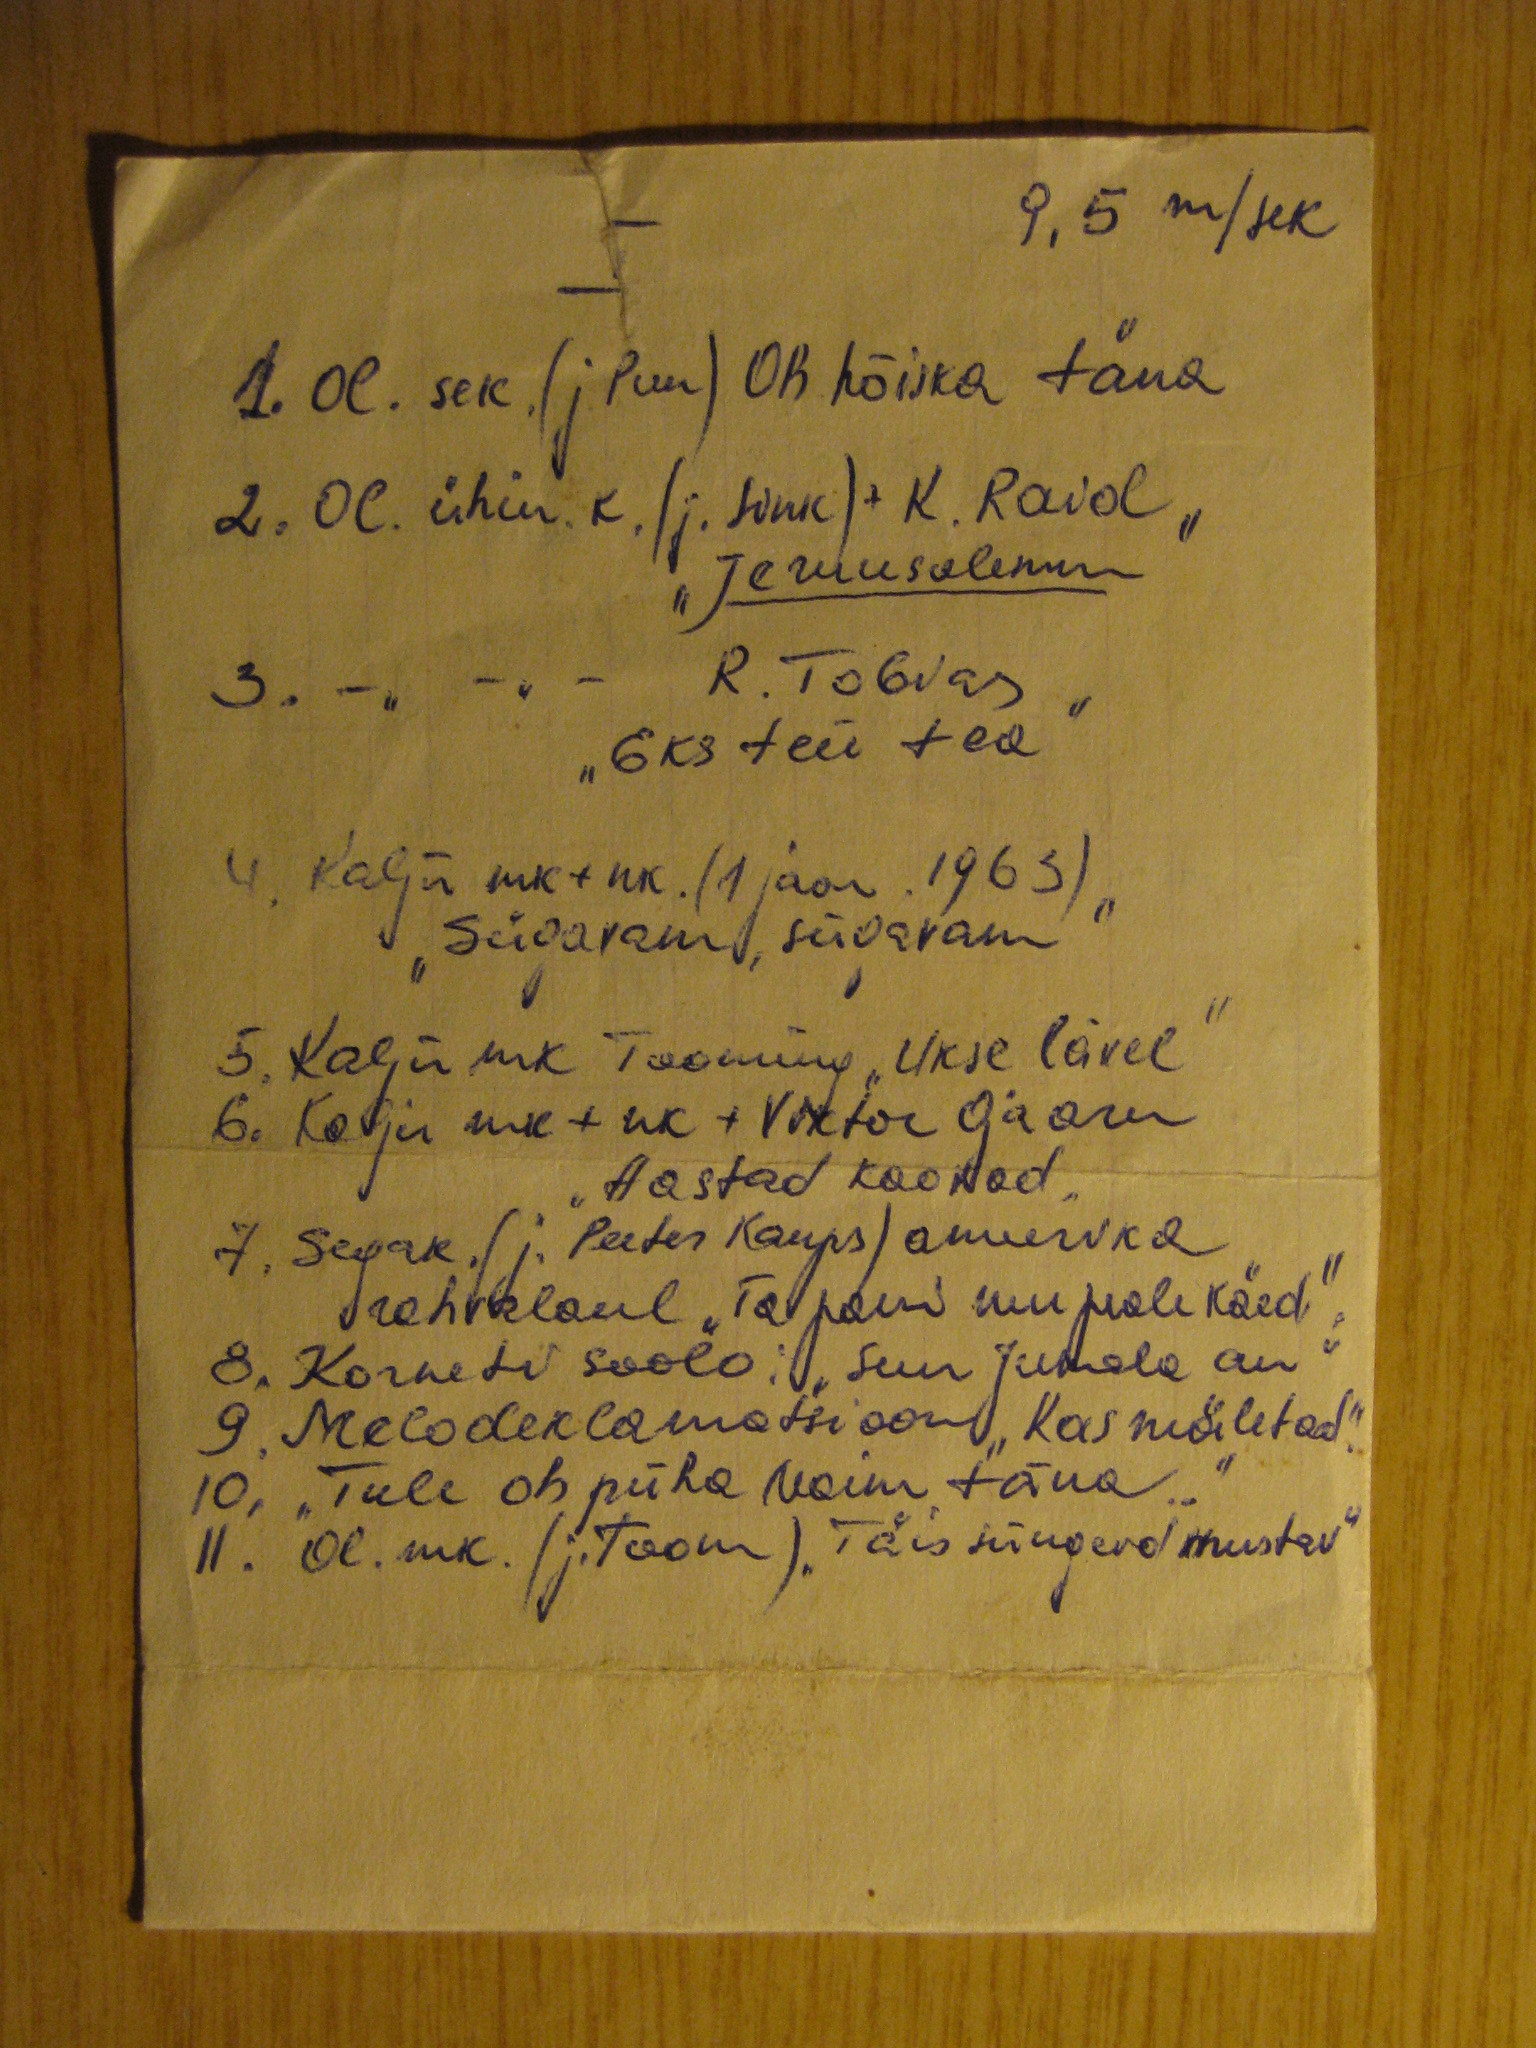 9,5 m/sek
—
—
1. Ol. sek. (j Puu) Oh hõiska täna
2. Ol. ühin. k. (j. Sink) + K. Raid „
„Jeruusalemm
3. –„ –„– R. Tobias „
„Eks teie tea
4. Kalju mk + nk. (1 jaan. 1963) „
„Sügavam, sügavam"
5. Kalju mk Tooming „Ukse lävel"
6. Kalju mk + nk + Viktor Ojaaru
„Aastad kaovad„
7. Segak. (j. Peeter Kaups) ameerika
rahvalaul „Ta pani mu peale käed".
8. Korneti soolo: „Suur Jumala arm"
9. Melodeklamatsioon „Kas mäletad".
10. „Tule oh püha Vaim täna.."
11. Ol. mk. (j. Toom) „Täis süngeid mustav"